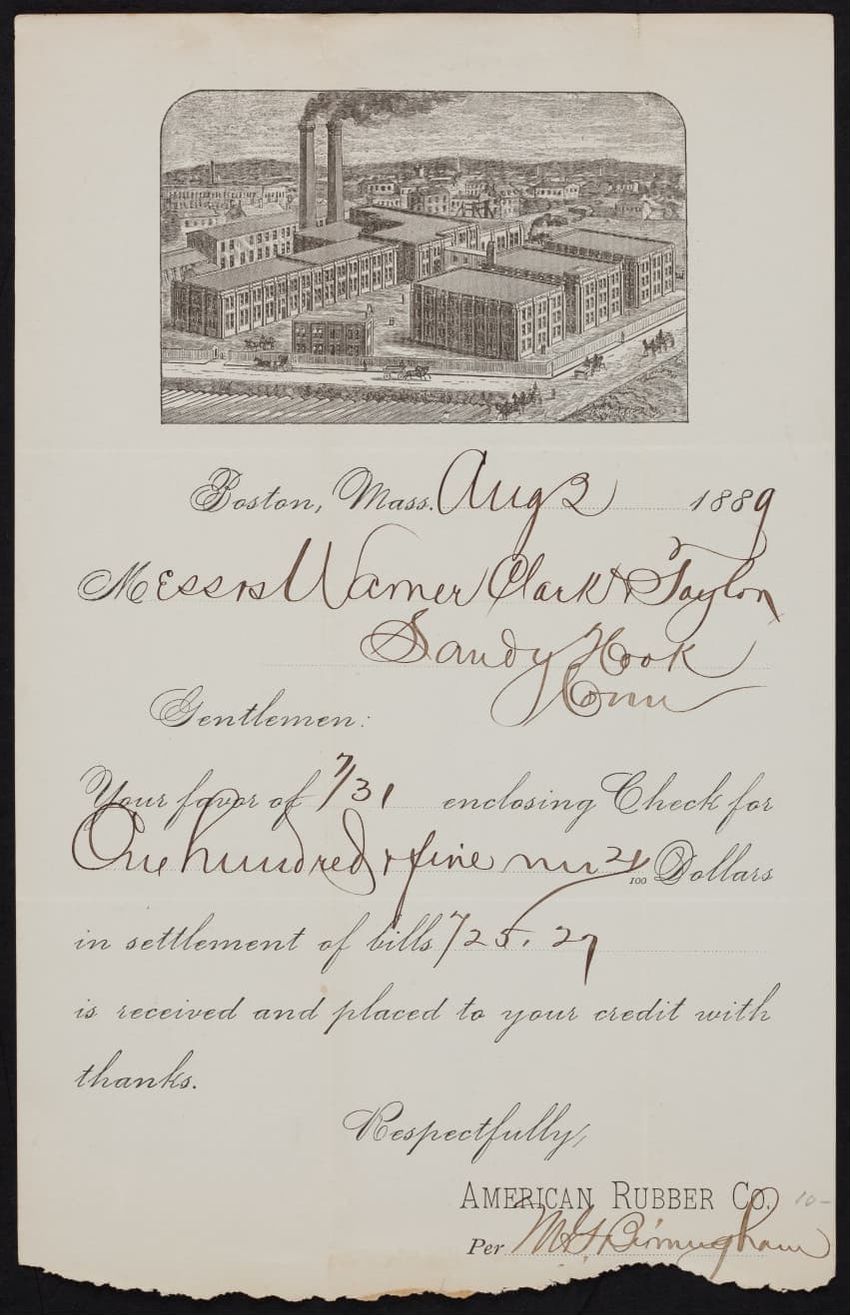 Boston, Mass. Aug 2 1889
Messrs Warner Clark & Taylor
Sandy Hook
Conn
Gentlemen:
Your favor of 7/31 enclosing Check for
One hundred & five 24/100 Dollars
in settlement of bills 7/25. 27
is received and placed to your credit with
thanks.
Respectfully,
AMERICAN RUBBER CO.
10-
Per Birmingham